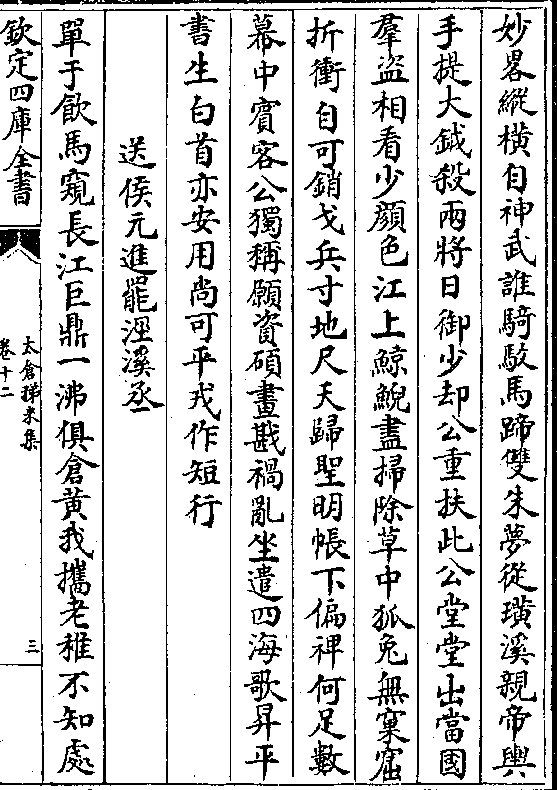 妙畧縱橫自神武誰騎駁馬蹄雙朱夢從璜溪親帝輿
手提大鉞殺兩將日御少却公重扶此公堂堂出當國
羣盜相看少顔色江上鯨鯢盡掃除草中狐兔無窠窟
折衝自可銷戈兵寸地尺天歸聖明帳下偏禆何足數
幕中賓客公獨稱願資碩畫戡禍亂坐遣四海歌昇平
書生白首亦安用尚可平戎作短行
送侯元進罷涇溪丞
單于飲馬窺長江巨鼎一沸俱倉黄我攜老稚不知處
欽定四庫全書
太倉稊米集
卷十二
三